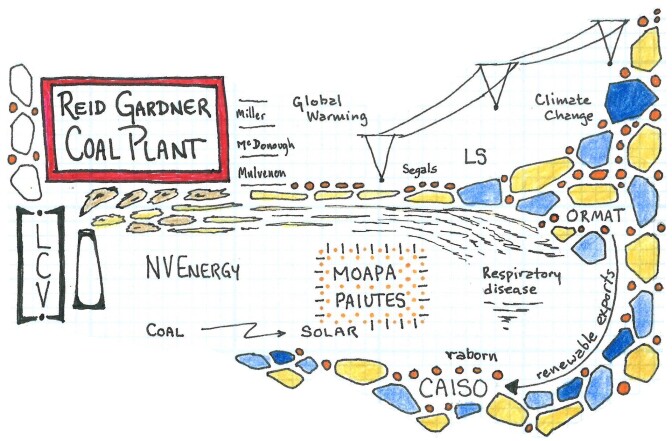 REID GARDNER
COAL PLANT
Miller
McDonough
Mulvenon
Global
Warming
Climate
Change
Segals
LS
ORMAT
LCV
NVENERGY
MOAPA
PAIUTES
Respiratory
disease
COAL
SOLAR
renewable exports
raborn
CAISO